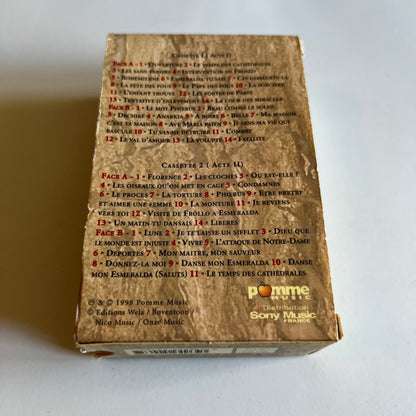 Cassette 1 ( Acte I )
Face A - 1 • Ouverture 2 • Le temps des cathédrales
3 • Les sans-papiers 4 • Intervention de Frollo
5 • Bohémienne 6 • Esmeralda tu sais 7 • Ces diamants-là
8 • La fête des fous 9 • Le Pape des fous 10 • La sorcière
11 • L'enfant trouvé 12 • Les portes de Paris
13 • Tentative d'enlèvement 14 • La cour des miracles
Face B - 1 • Le mot Phœbus 2 • Beau comme le soleil
3 • Déchiré 4 • Anarkia 5 • À boire 6 • Belle 7 • Ma
maison c'est ta maison 8 • Ave Maria païen 9 • Je sens ma vie qui
bascule 10 • Tu vas me détruire 11 • L'ombre
12 • Le val d'amour 13 • La volupté 14 • Fatalité
Cassette 2 ( Acte II )
Face A - 1 • Florence 2 • Les cloches 3 • Où est-elle ?
4 • Les oiseaux qu'on met en cage 5 • Condamnés
6 • Le procès 7 • La torture 8 • Phœbus 9 • Être prêtre
et aimer une femme 10 • La monture 11 • Je reviens
vers toi 12 • Visite de Frollo à Esmeralda
13 • Un matin tu dansais 14 • Libérés
Face B - 1 • Lune 2 • Je te laisse un sifflet 3 • Dieu que
le monde est injuste 4 • Vivre 5 • L'attaque de Notre-Dame
6 • Déportés 7 • Mon maître, mon sauveur
8 • Donnez-la moi 9 • Danse mon Esmeralda 10 • Danse
mon Esmeralda (Saluts) 11 • Le temps des cathédrales
℗ & © 1998 Pomme Music
© Editions Wela / Boventoon /
Nico Music / Onze Music
pomme
MUSIC
Distribution
Sony Music
FRANCE